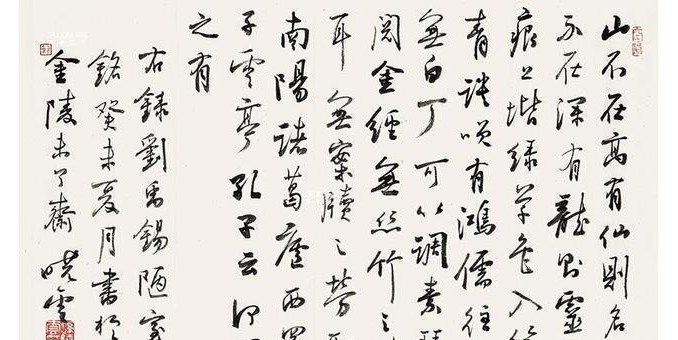 山不在高有仙則名
不在深有龍則靈
痕上堦綠草色入
青談唉有鴻儒往
無白丁可以調素琴
閱金經無丝竹之
耳無案牘之勞
南陽諸葛廬西蜀
子雲亭孔子云何
之有
右錄劉禹錫陋室
銘癸未夏月書於
金陵未了齋曉雲